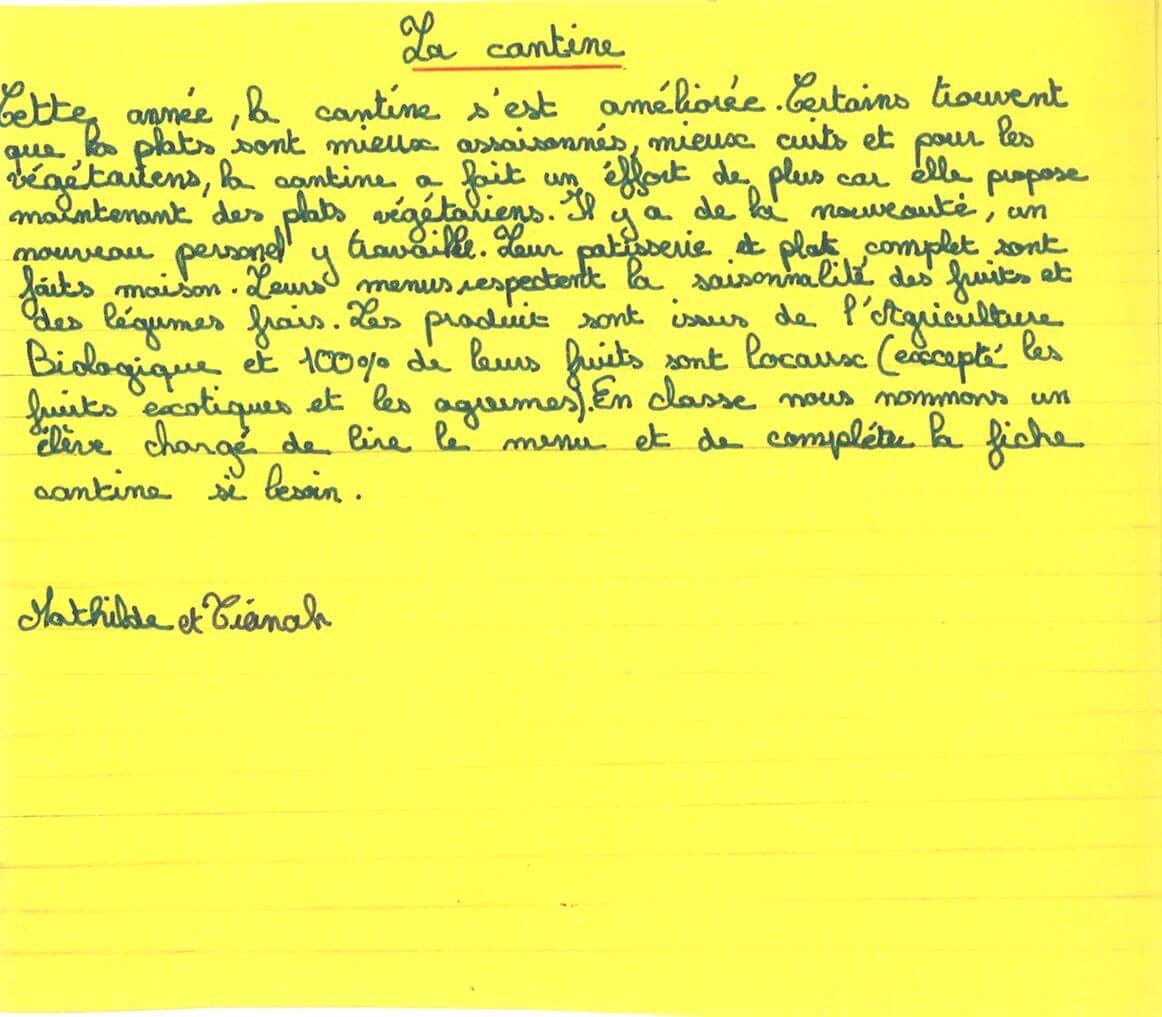 La cantine
Cette année, la cantine s'est améliorée. Certains trouvent
que les plats sont mieux assaisonnés, mieux cuits et pour les
végétariens, la cantine a fait un éffort de plus car elle propose
maintenant des plats végétariens. Il y a de la nouveauté, un
nouveau personel y travaille. Leur patisserie et plat complet sont
faits maison. Leurs menus respectent la saisonnalité des fruits et
des légumes frais. Les produit sont issus de l'Agriculture
Biologique et 100% de leurs fruits sont locaux (excepté les
fruits exotiques et les agrumes). En classe nous nommons un
élève chargé de lire le menu et de compléter la fiche
cantine si besoin.
Mathilde et Tiánah